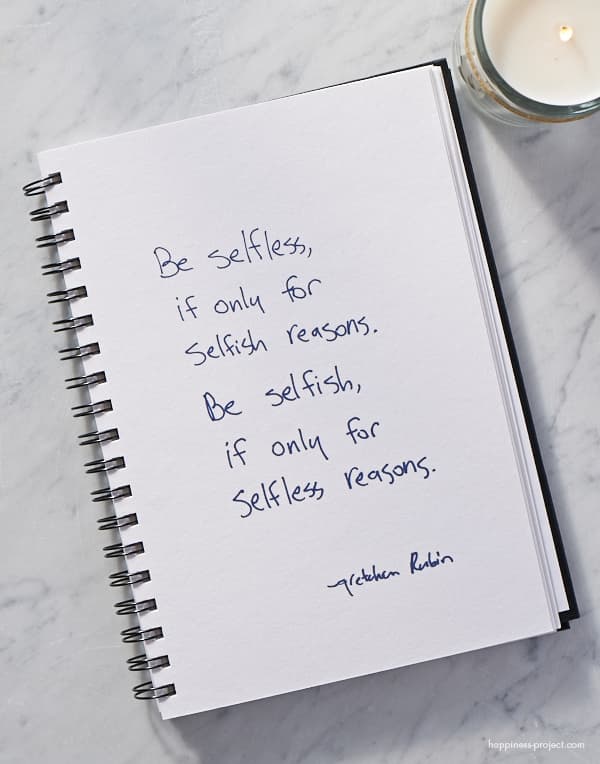 Be selfless,
if only for
selfish reasons.
Be selfish,
if only for
selfless reasons.
-gretchen Rubin
happiness-project.com